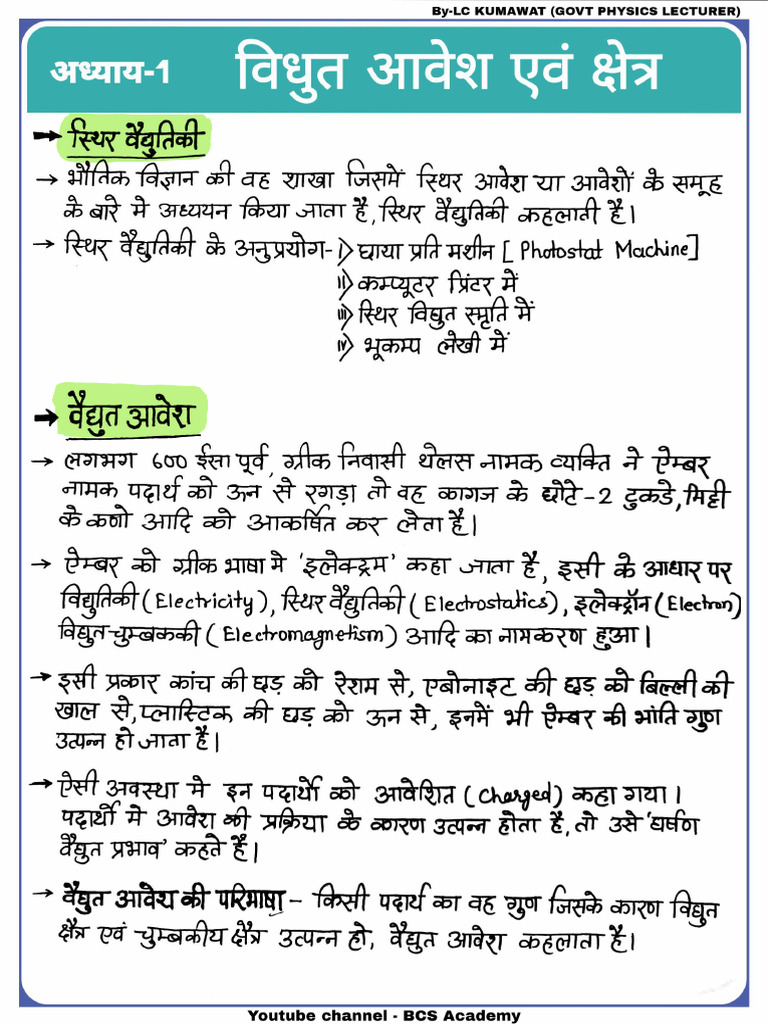 By-LC KUMAWAT (GOVT PHYSICS LECTURER)
अध्याय-1 विधुत आवेश एवं क्षेत्र
→ स्थिर वैद्युतिकी
→ भौतिक विज्ञान की वह शाखा जिसमें स्थिर आवेश या आवेशों के समूह
के बारे मे अध्ययन किया जाता है, स्थिर वैद्युतिकी कहलाती है।
→ स्थिर वैद्युतिकी के अनुप्रयोग- i) छाया प्रति मशीन [ Photostat Machine]
ii) कम्प्यूटर प्रिंटर में
iii) स्थिर विद्युत स्मृति में
iv) भूकम्प लेखी में
→ वैद्युत आवेश
→ लगभग 600 ईसा पूर्व, ग्रीक निवासी थेलस नामक व्यक्ति ने ऐम्बर
नामक पदार्थ को ऊन से रगड़ा तो वह कागज के छोटे-2 टुकडे, मिट्टी
के कणो आदि को आकर्षित कर लेता है।
→ ऐम्बर को ग्रीक भाषा मे 'इलेक्ट्रम' कहा जाता है, इसी के आधार पर
विद्युतिकी (Electricity), स्थिर वैद्युतिकी (Electrostatics), इलेक्ट्रॉन (Electron)
विद्युत-चुम्बककी (Electromagnetism) आदि का नामकरण हुआ।
→ इसी प्रकार कांच की छड़ को रेशम से, एबोनाइट की छड़ को बिल्ली की
खाल से, प्लास्टिक की छड़ को ऊन से, इनमें भी ऐम्बर की भांति गुण
उत्पन्न हो जाता है।
→ ऐसी अवस्था मे इन पदार्थो को आवेशित (Charged) कहा गया।
पदार्थो मे आवेश की प्रक्रिया के कारण उत्पन्न होता है, तो उसे 'घर्षण
वैद्युत प्रभाव' कहते हैं।
→ वैद्युत आवेश की परिभाषा - किसी पदार्थ का वह गुण जिसके कारण विद्युत
क्षैत्र एवं चुम्बकीय क्षैत्र उत्पन्न हो, वैद्युत आवेश कहलाता है।
Youtube channel - BCS Academy